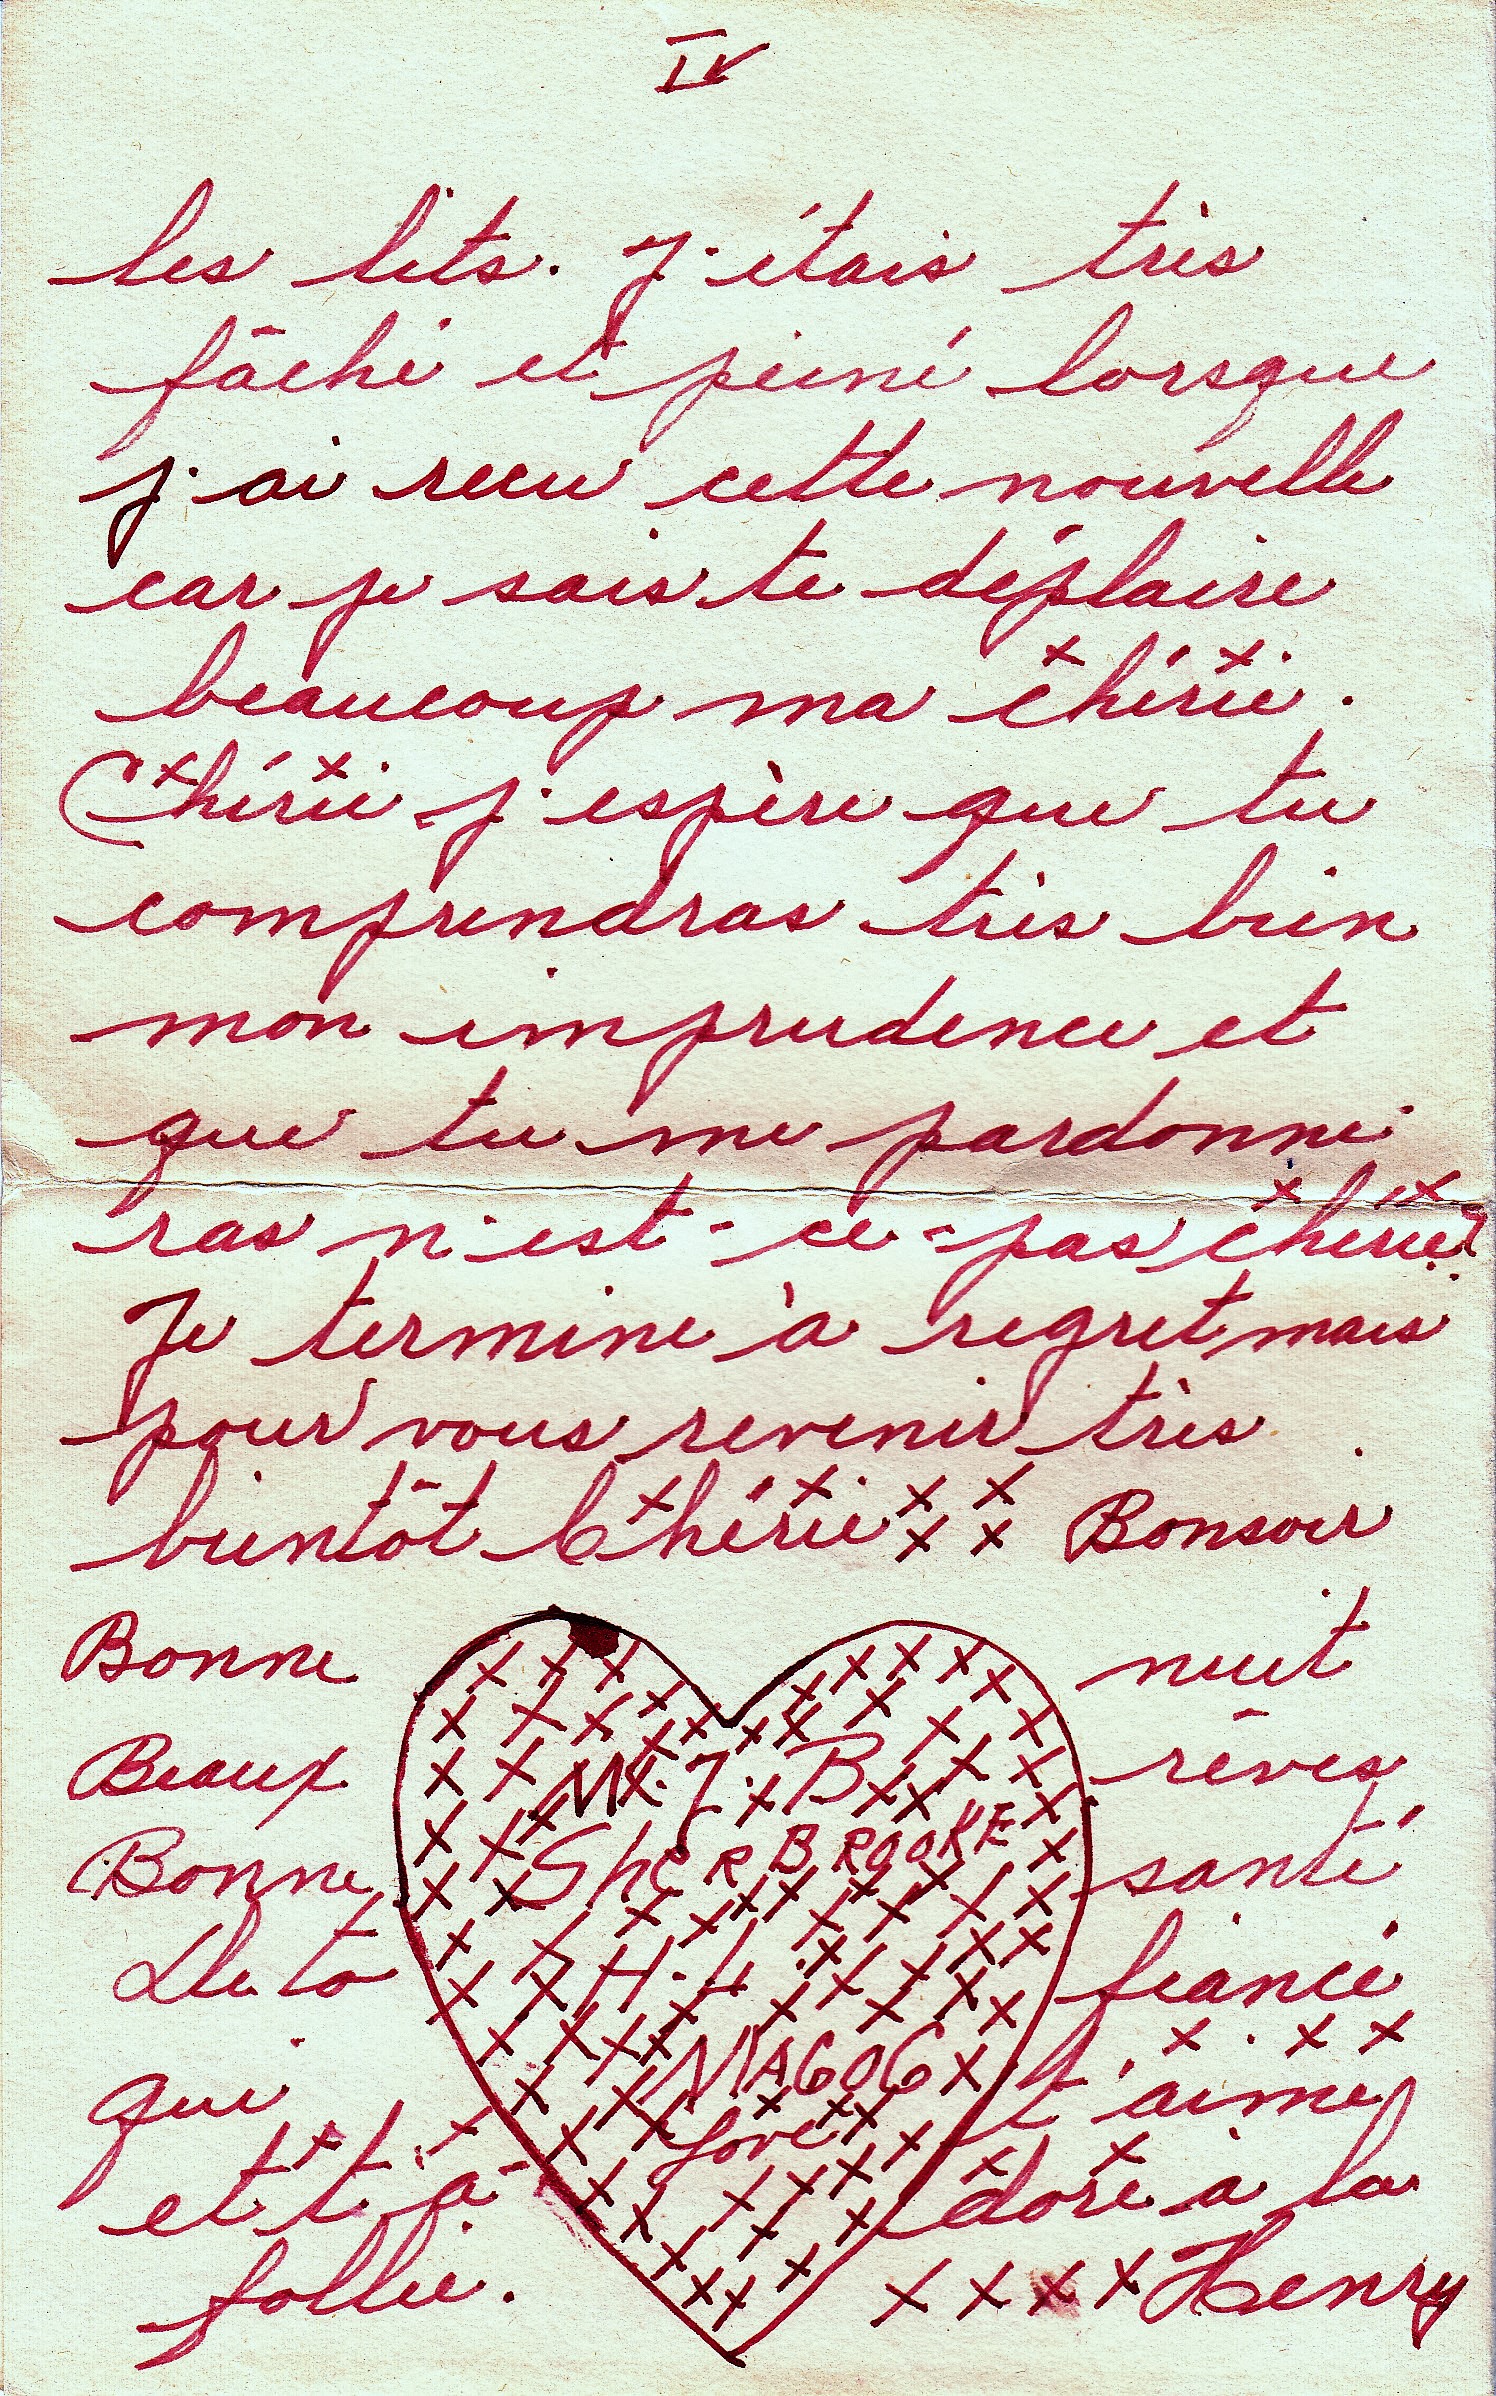 IV
les lits. J'étais très
fâché et peiné lorsque
j'ai recu cette nouvelle
car je sais te déplaire
beaucoup ma chérie.
Chérie j'espère que tu
comprendras très bien
mon imprudence et
que tu me pardonne
ras n'est-ce-pas chérie?
Je termine à regret mais
pour vous revenir très
bientôt Chérie xx xx Bonsoir
Bonne nuit
Beaux rêves
Bonne santé
De to fiancé
qui t'aime
et t'a- dore a la
follie. x x x x Henry
M. J. B
ShERBROOKE
H. L.
MAGOG
Love